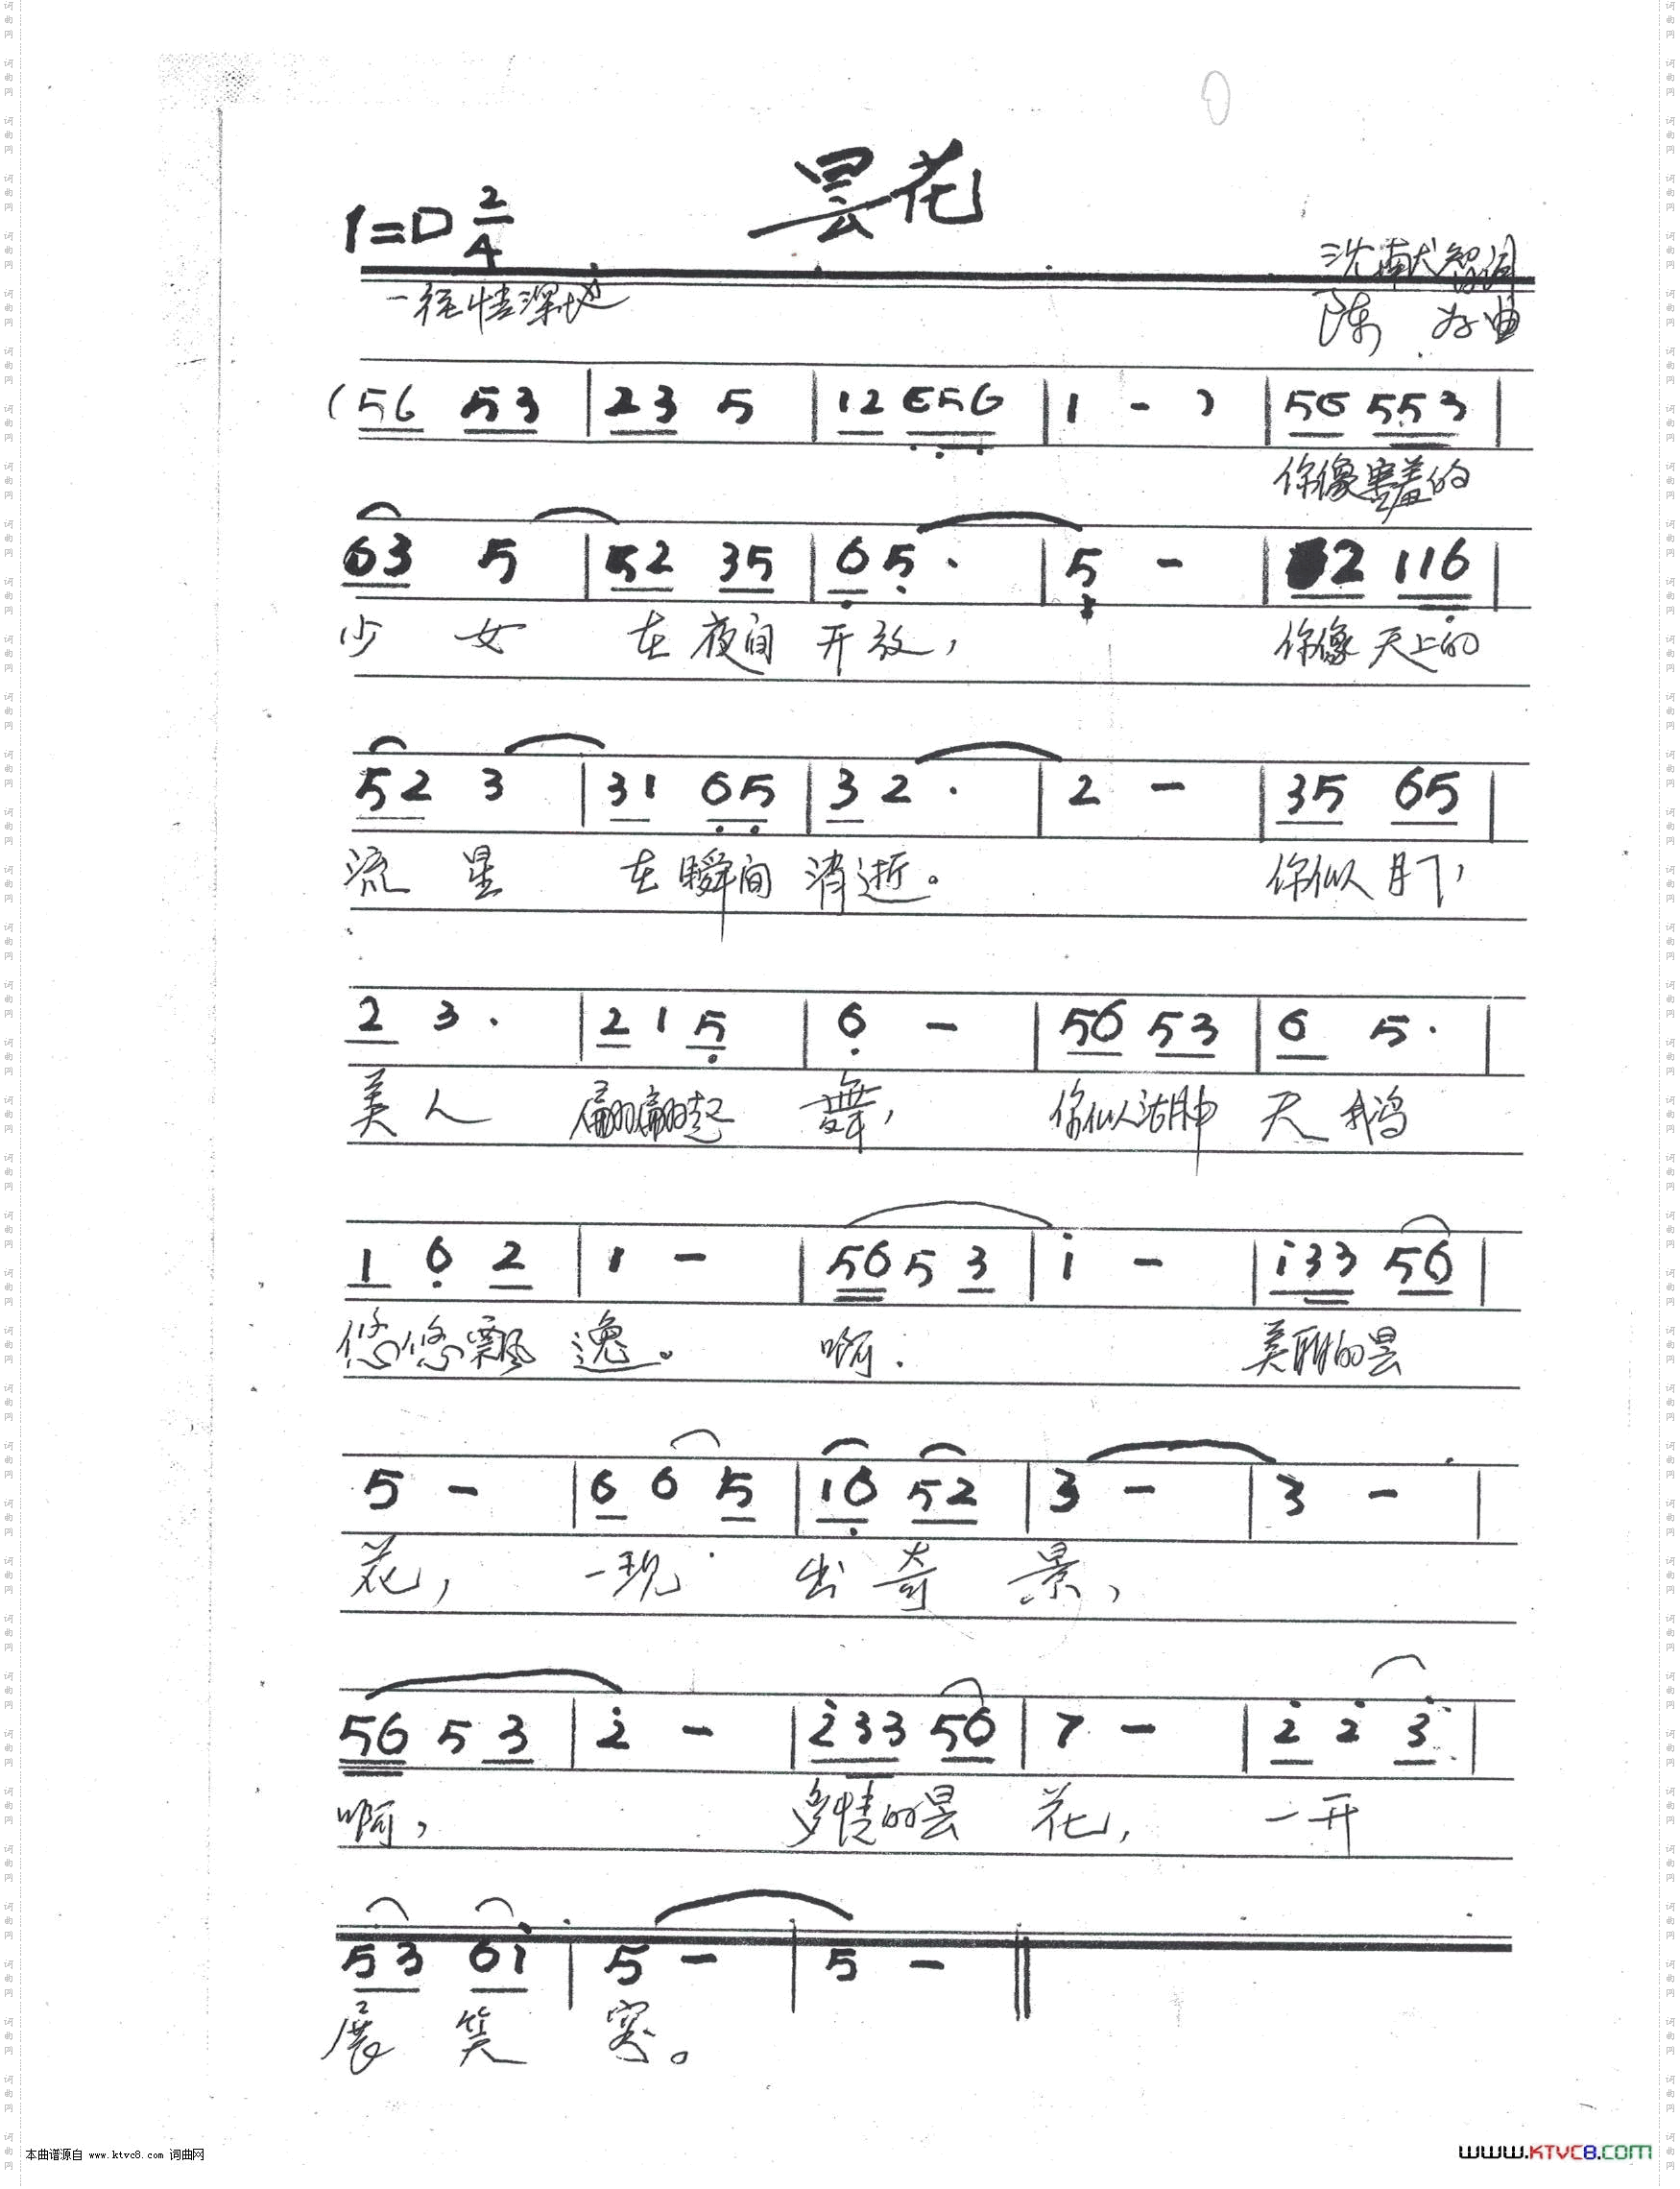 昙花
1=D 2/4
沈献智词
一往情深地
陈 好曲
(56 53 | 23 5 | 12 656 | 1 - ) | 56 553 |
你像害羞的
63 5 | 52 35 | 6 5 · | 5 - | 62 116 |
少 女 在夜间 开放， 你像天上的
52 3 | 31 65 | 3 2 · | 2 - | 35 65 |
流 星 在瞬间 消逝。 你似月下，
2 3 · | 2 1 5 | 6 - | 56 53 | 6 5 · |
美人 翩翩起 舞， 你似湖中 天鹅
1 6 2 | 1 - | 56 5 3 | i - | i33 56 |
悠悠飘 逸。 啊． 美丽的昙
5 - | 6 6 5 | 16 52 | 3 - | 3 - |
花， 一现 出奇 景，
56 5 3 | 2 - | 233 56 | 7 - | 2 2 3 |
啊， 多情的昙 花， 一开
53 61 | 5 - | 5 - ‖
展 笑 容。
本曲谱源自 www.ktvc8.com 词曲网
www.KTVC8.COM